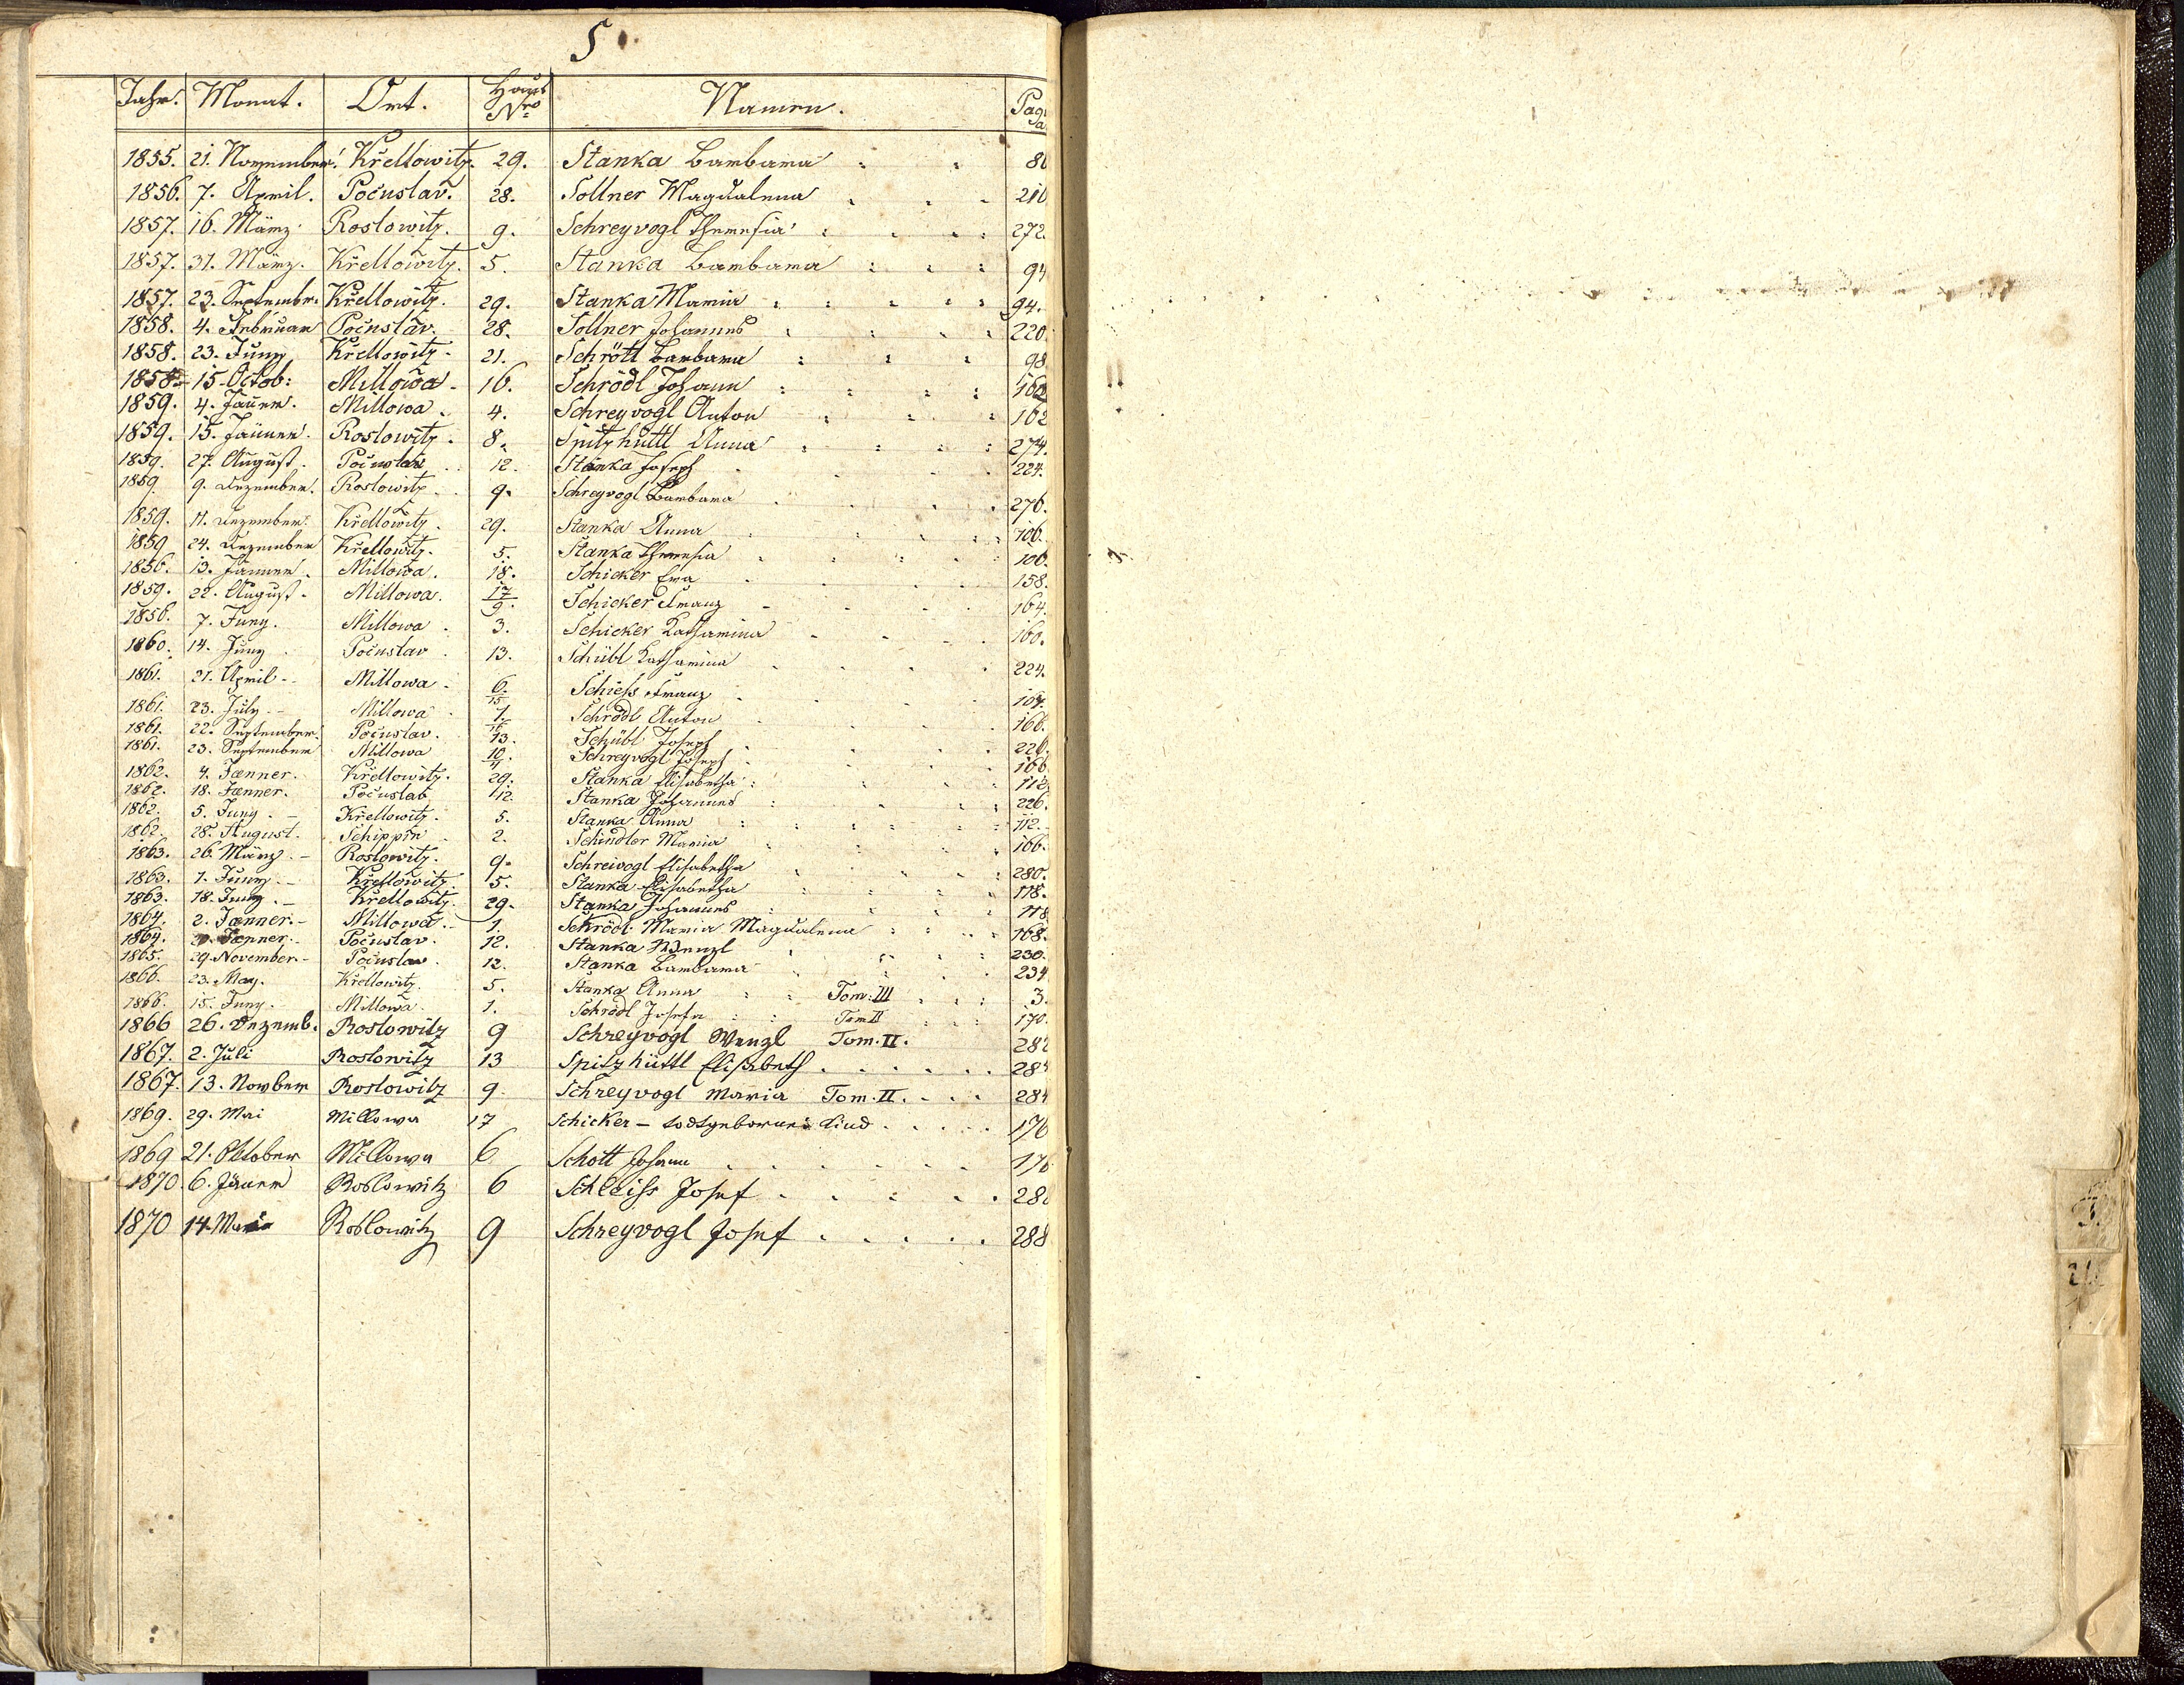 S.
Jahr. Monat. Ort. Haus Nro Namen. Pag
1855. 21. November. Křellowitz. 29. Stanka Barbara
1856. 7. April. Počuslav. 28. Sollner Magdalena 210
1857. 16. März Roslowitz. 9. Schreyvogl Theresia 272.
1857. 31. März. Křellowitz. 5. Stanka Barbara 94
1857. 23. Septembr. Křellowitz. 29. Stanka Maria 94.
1858. 4. Februar Počuslav. 28. Sollner Johannes 220.
1858. 23. Juny Křellowitz. 21. Schrötl Barbara 98
1858. 15. Octob: Millowa 16. Schrödl Johann 162
1859. 4. Jäner. Millowa. 4. Schreyvogl Anton 162
1859. 15. Jänner. Roslowitz. 8. Spitzhüttl Anna 274.
1859. 27. August. Počuslav 12. Stanka Joseph 224.
1859 9. Dezember. Roslowitz. 9. Schreyvogl Barbara 276.
1859. 11. Dezember. Křellowitz. 29. Stanka Anna 106.
1859 24. Dezember Křellowitz. 5. Stanka Theresia 106.
1856. 13. Jänner. Millowa. 18. Schicker Eva 158.
1859. 22. August. Millowa. 17/9. Schicker Franz 164.
1856. 7. Juny. Millowa 3. Schicker Katharina 160.
1860. 14. Juny Počuslav 13. Schübl Katharina 224.
1861. 21. April Millowa 6/15 Schiess Franz
1861. 23. July. Millowa 1. Schrödl Anton 166.
1861. 22. September. Počuslav. 13. Schübl Joseph 226.
1861. 23. September Millowa 10/4. Schreyvogl Joseph 166
1862. 4. Jænner. Křellowitz. 29. Stanka Elisabetha 112
1862. 18. Jænner. Počuslav 12. Stanka Johannes 226.
1862. 5. Juny. Křellowitz. 5. Stanka Anna 112.
1862. 28. August. Schippin 2. Schindler Maria 166.
1863. 26. März. Roslowitz. 9. Schreivogl Elisabetha 280.
1863. 1. Juny. Křellowitz 5. Stanka Elisabetha 118.
1863. 18. Juny. Křellowitz. 29. Stanka Johannes 118
1864. 2. Jænner. Millowa. 1. Schrödl Maria Magdalena 168.
1864. Jænner. Počuslav. 12. Stanka Wenzl 230.
1865. 29. November Počuslav. 12. Stanka Barbara 234
1866. 23. May. Křellowitz. 5. Stanka Anna Tom: III 3.
1866. 15. Juny. Millowa. 1. Schrödl Josefa Tom II 170.
1866 26. Dezemb. Roslowitz 9 Schreyvogl Wenzl Tom. II. 282
1867. 2. Juli Roslowitz 13 Spitzhüttl Elisabeth 284
1867. 13. Novber Roslowitz 9. Schreyvogl Maria Tom. II. 284
1869. 29. Mai Millowa 17 Schicker – todtgebornes Kind 176
1869 21. Oktober Millowa 6 Schott Johann 176
1870. 6. Jäner Roslowitz 6 Schleiss Josef
1870 14. Roslowitz 9 Schreyvogl Josef 288